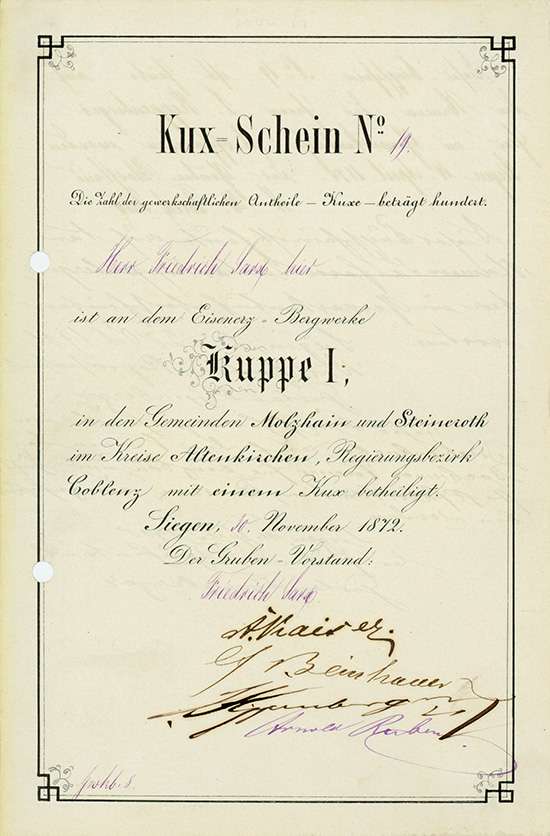 Kux-Schein Nº 19.
Die Zahl der gewerkschaftlichen Antheile – Kuxe – beträgt hundert.
Herr Friedrich Sarx hier
ist an dem Eisenerz-Bergwerke
Kuppe I,
in den Gemeinden Molzhain und Steineroth
im Kreise Altenkirchen, Regierungsbezirk
Coblenz mit einem Kux betheiligt.
Siegen, 30. November 1872.
Der Gruben-Vorstand:
Friedrich Sarx
A. Kaiser.
Beinhauer
Arnold